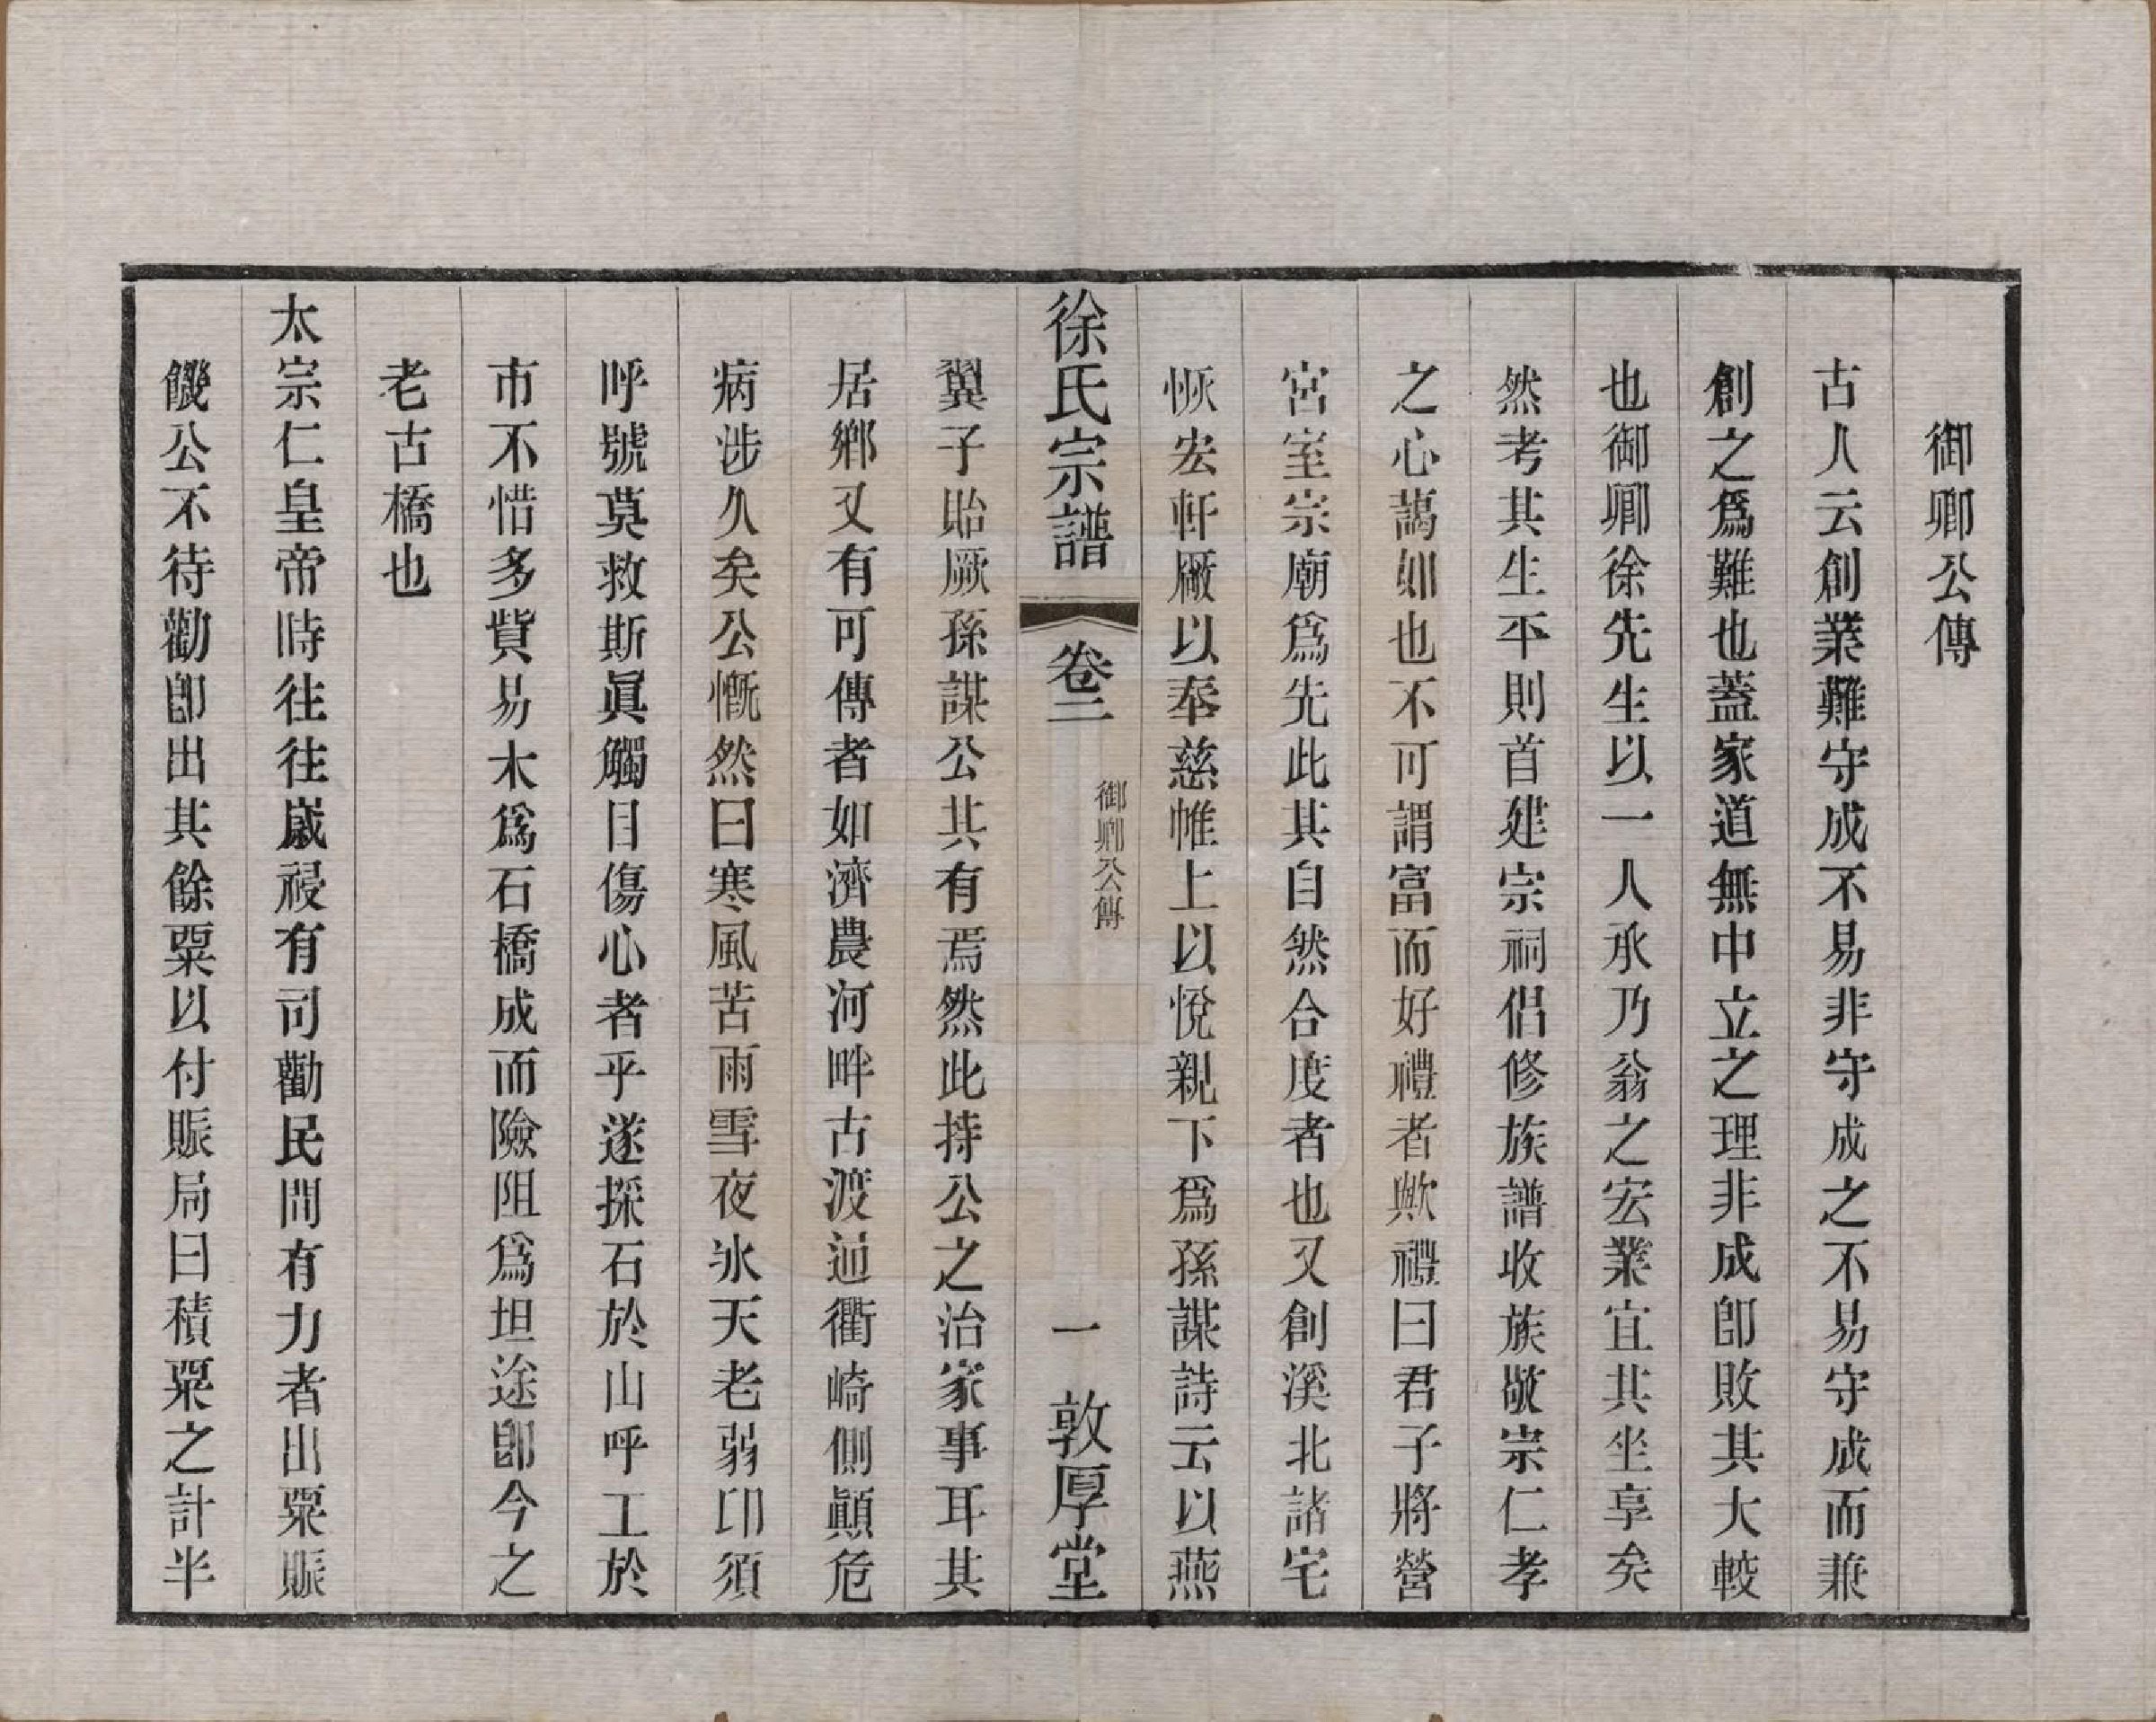 御卿公傳
古人云創業難守成不易非守成之不易守成而兼
創之爲難也蓋家道無中立之理非成卽敗其大較
也御卿徐先生以一人承乃翁之宏業宜其坐享矣
然考其生平則首建宗祠倡修族譜收族敬宗仁孝
之心藹如也不可謂富而好禮者歟禮曰君子將營
宮室宗廟爲先此其自然合度者也又創溪北諸宅
恢宏軒厰以奉慈帷上以悅親下爲孫謀詩云以燕
徐氏宗譜
卷二
御卿公傳
一
敦厚堂
翼子貽厥孫謀公其有焉然此持公之治家事耳其
居鄉又有可傳者如濟農河畔古渡逈衢崎側顚危
病涉久矣公慨然曰寒風苦雨雪夜氷天老弱卬須
呼號莫救斯眞觸目傷心者乎遂採石於山呼工於
市不惜多貲易木爲石橋成而險阻爲坦途卽今之
老古橋也
太宗仁皇帝時往往歲祲有司勸民間有力者出粟賑
饑公不待勸卽出其餘粟以付賑局曰積粟之計半